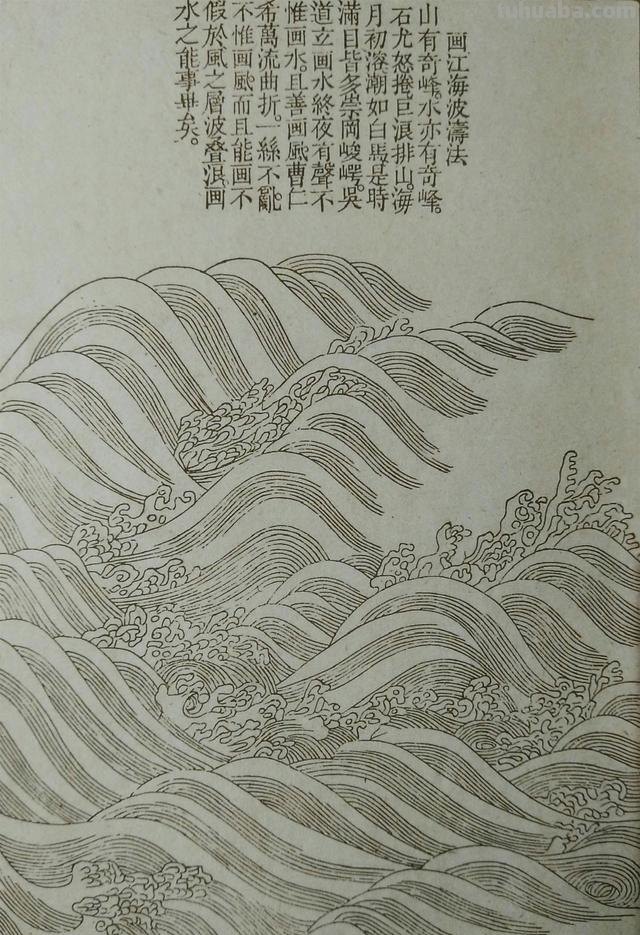 画江海波濤法
山有奇峰。水亦有奇峰。
石尤怒捲。巨浪排山。海
月初溶。潮如白馬。是時
滿目皆多崇岡峻崿。吳
道立画水終夜有聲。不
惟画水。且善画風。曹仁
希萬流曲折。一絲不亂。
不惟画風。而且能画不
假於風之層波叠淇。画
水之能事毕矣。
tuhuaba.com
tuhuaba.com